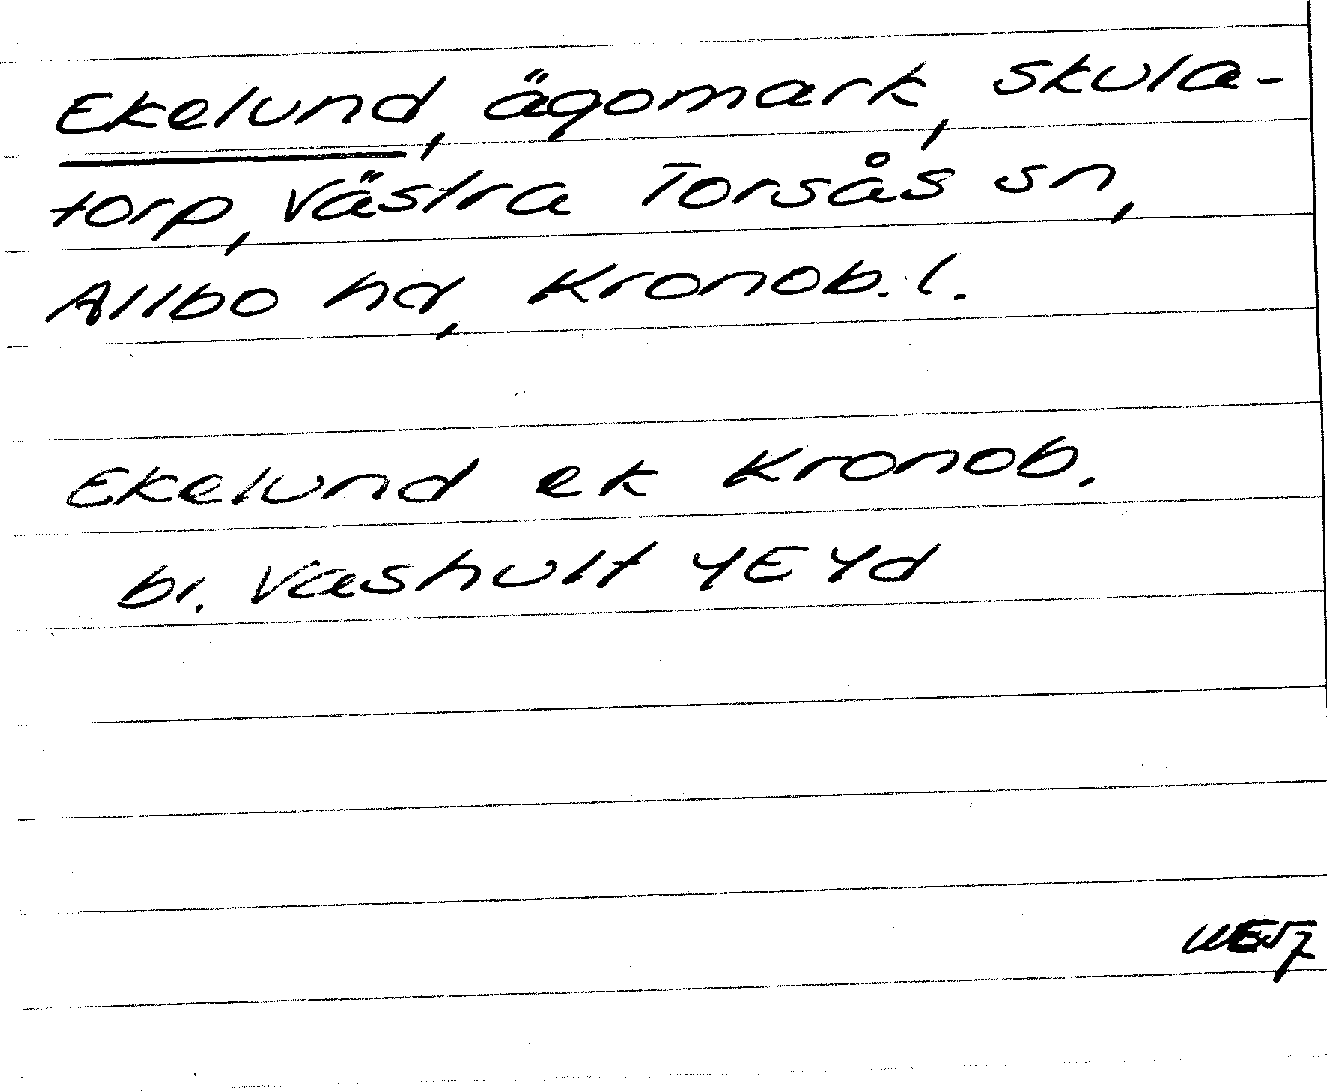 Ekelund, ägomark, Skula-
torp, Västra Torsås sn,
Allbo hd, Kronob. l.
Ekelund ek Kronob.
bl. Vashult 4E4d